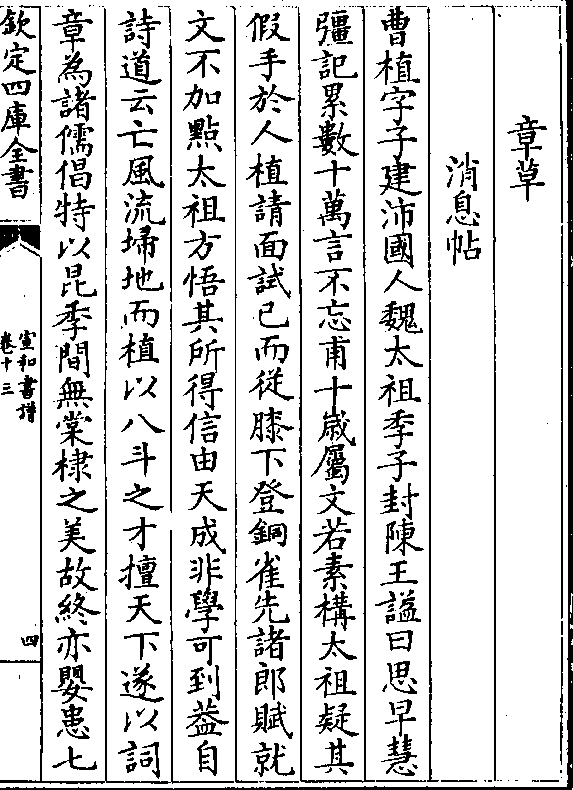 章草
消息帖
曹植字子建沛國人魏太祖季子封陳王謚曰思早慧
彊記累數十萬言不忘甫十歲屬文若素構太祖疑其
假手於人植請面試已而從膝下登銅雀先諸郎賦就
文不加點太祖方悟其所得信由天成非學可到葢自
詩道云亡風流埽地而植以八斗之才擅天下遂以詞
章為諸儒倡特以昆季間無棠棣之美故終亦嬰患七
欽定四庫全書
宣和書譜
卷十三
四